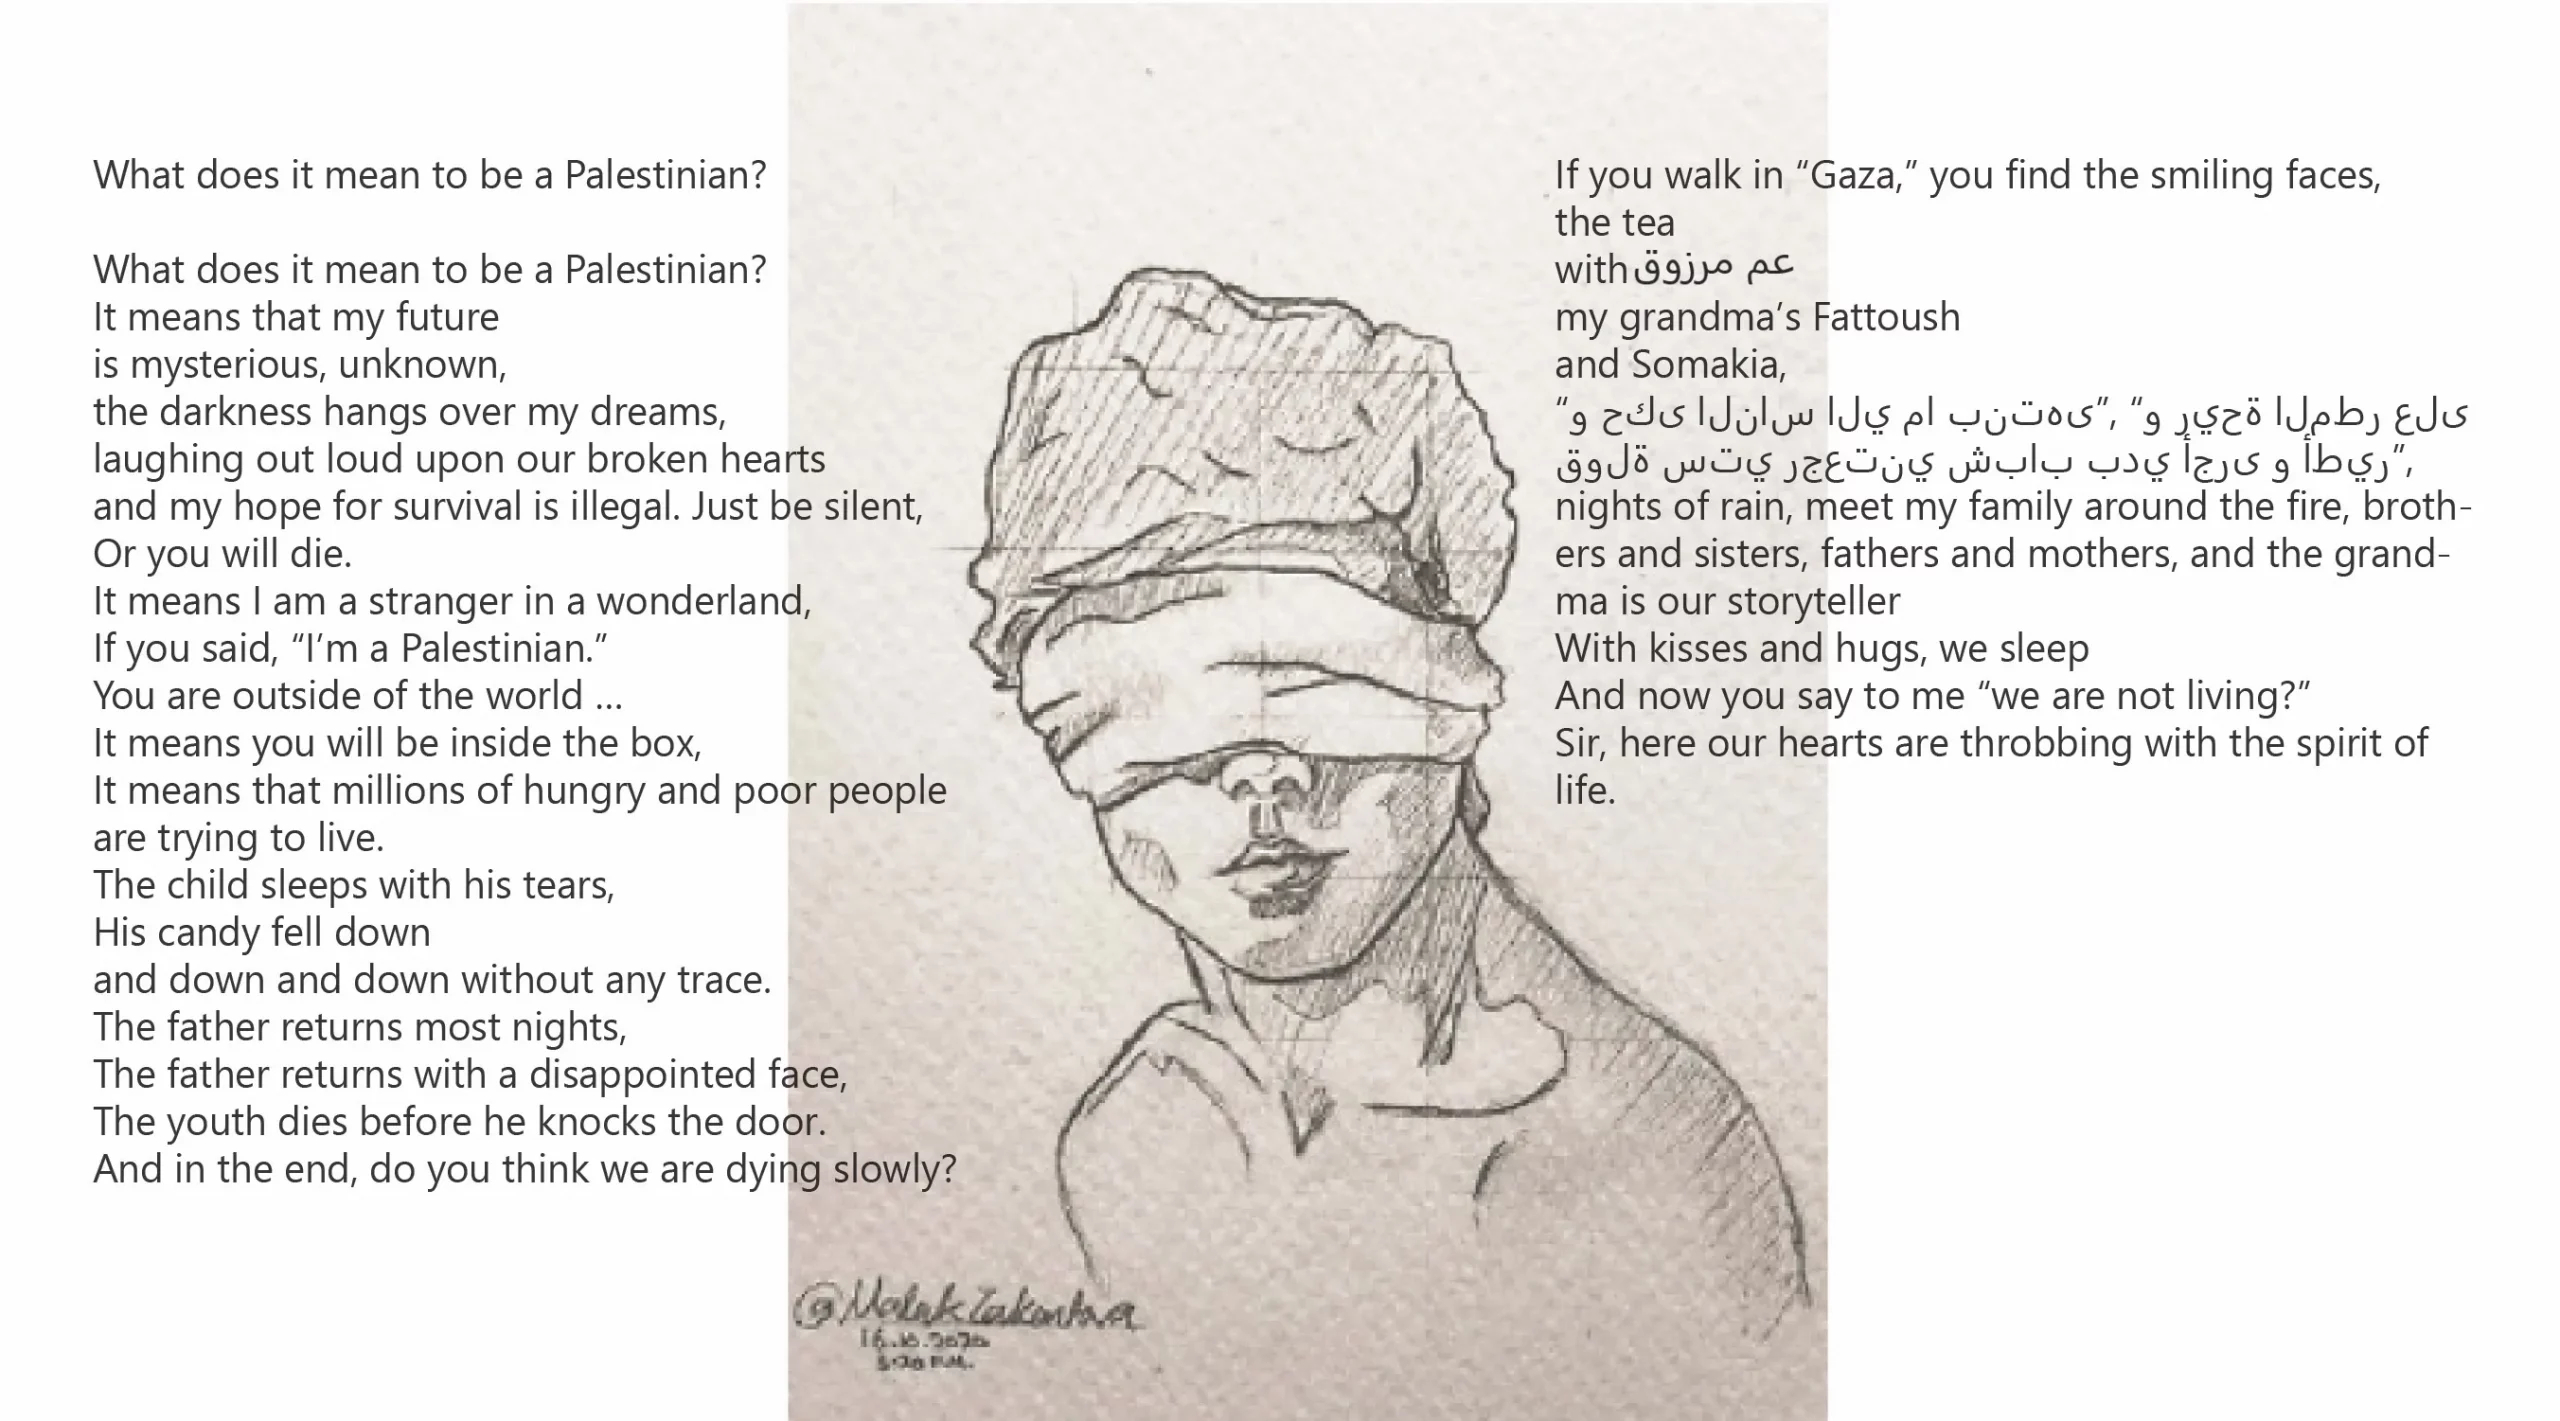 What does it mean to be a Palestinian?
What does it mean to be a Palestinian?
It means that my future
is mysterious, unknown,
the darkness hangs over my dreams,
laughing out loud upon our broken hearts
and my hope for survival is illegal. Just be silent,
Or you will die.
It means I am a stranger in a wonderland,
If you said, “I’m a Palestinian.”
You are outside of the world ...
It means you will be inside the box,
It means that millions of hungry and poor people
are trying to live.
The child sleeps with his tears,
His candy fell down
and down and down without any trace.
The father returns most nights,
The father returns with a disappointed face,
The youth dies before he knocks the door.
And in the end, do you think we are dying slowly?
If you walk in “Gaza,” you find the smiling faces,
the tea
with عم مرزوق
my grandma’s Fattoush
and Somakia,
“و حكى الناس الي ما بنتهى”, “و ريحة المطر على
قولة ستي رجعتني شباب بدي أجرى و أطير”,
nights of rain, meet my family around the fire, broth-
ers and sisters, fathers and mothers, and the grand-
ma is our storyteller
With kisses and hugs, we sleep
And now you say to me “we are not living?”
Sir, here our hearts are throbbing with the spirit of
life.
@Malak
16.10.2020